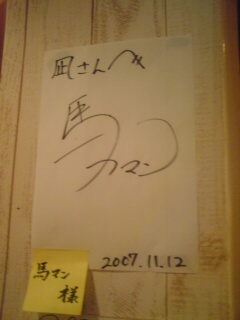 凪さんへ
馬マン
2007.11.12
馬マン
様